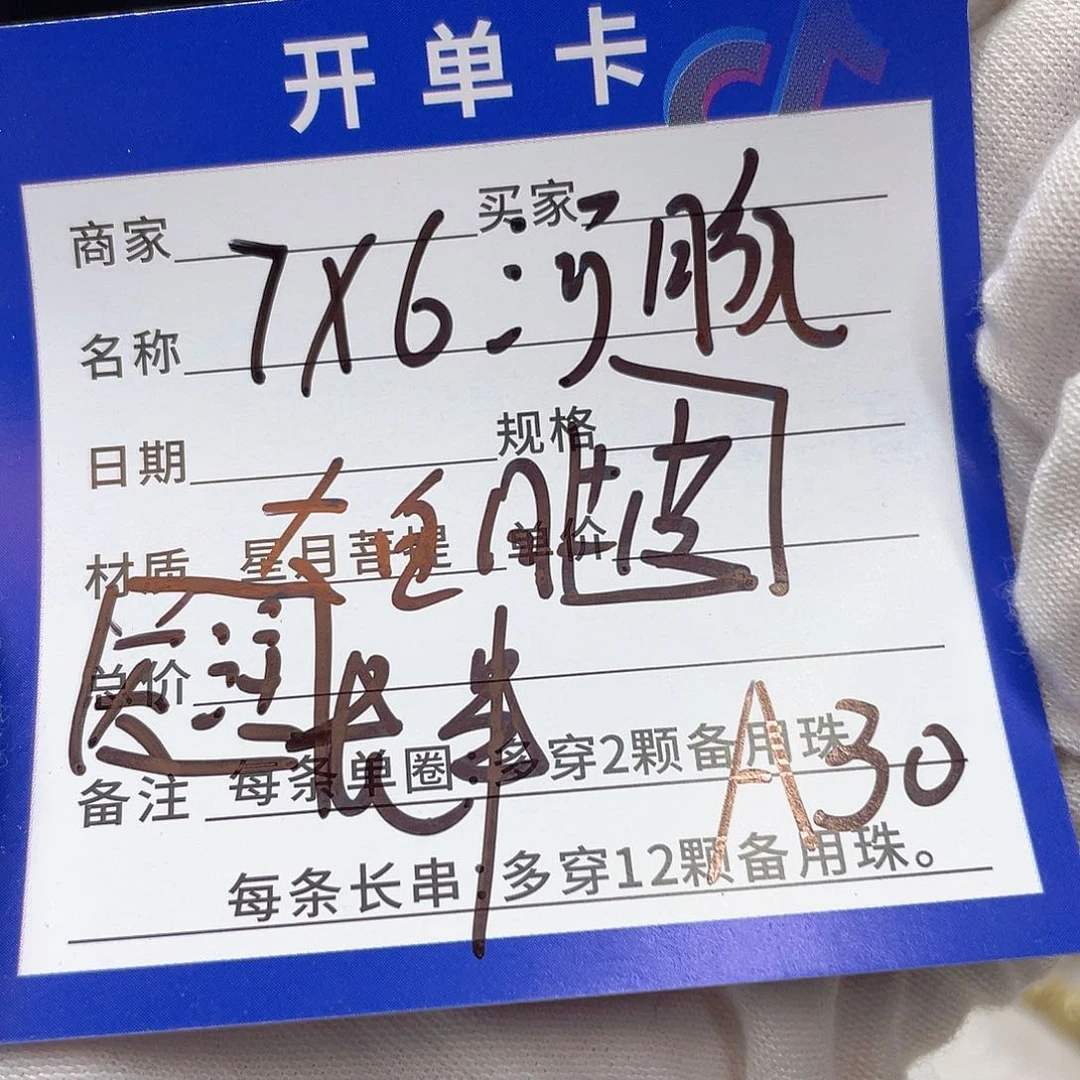 开单卡
商家 买家
7X6
名称
日期 规格
皮
材质 星月菩提 单价
总价
长串
备注 每条单圈:多穿2颗备用珠
A30
每条长串:多穿12颗备用珠。